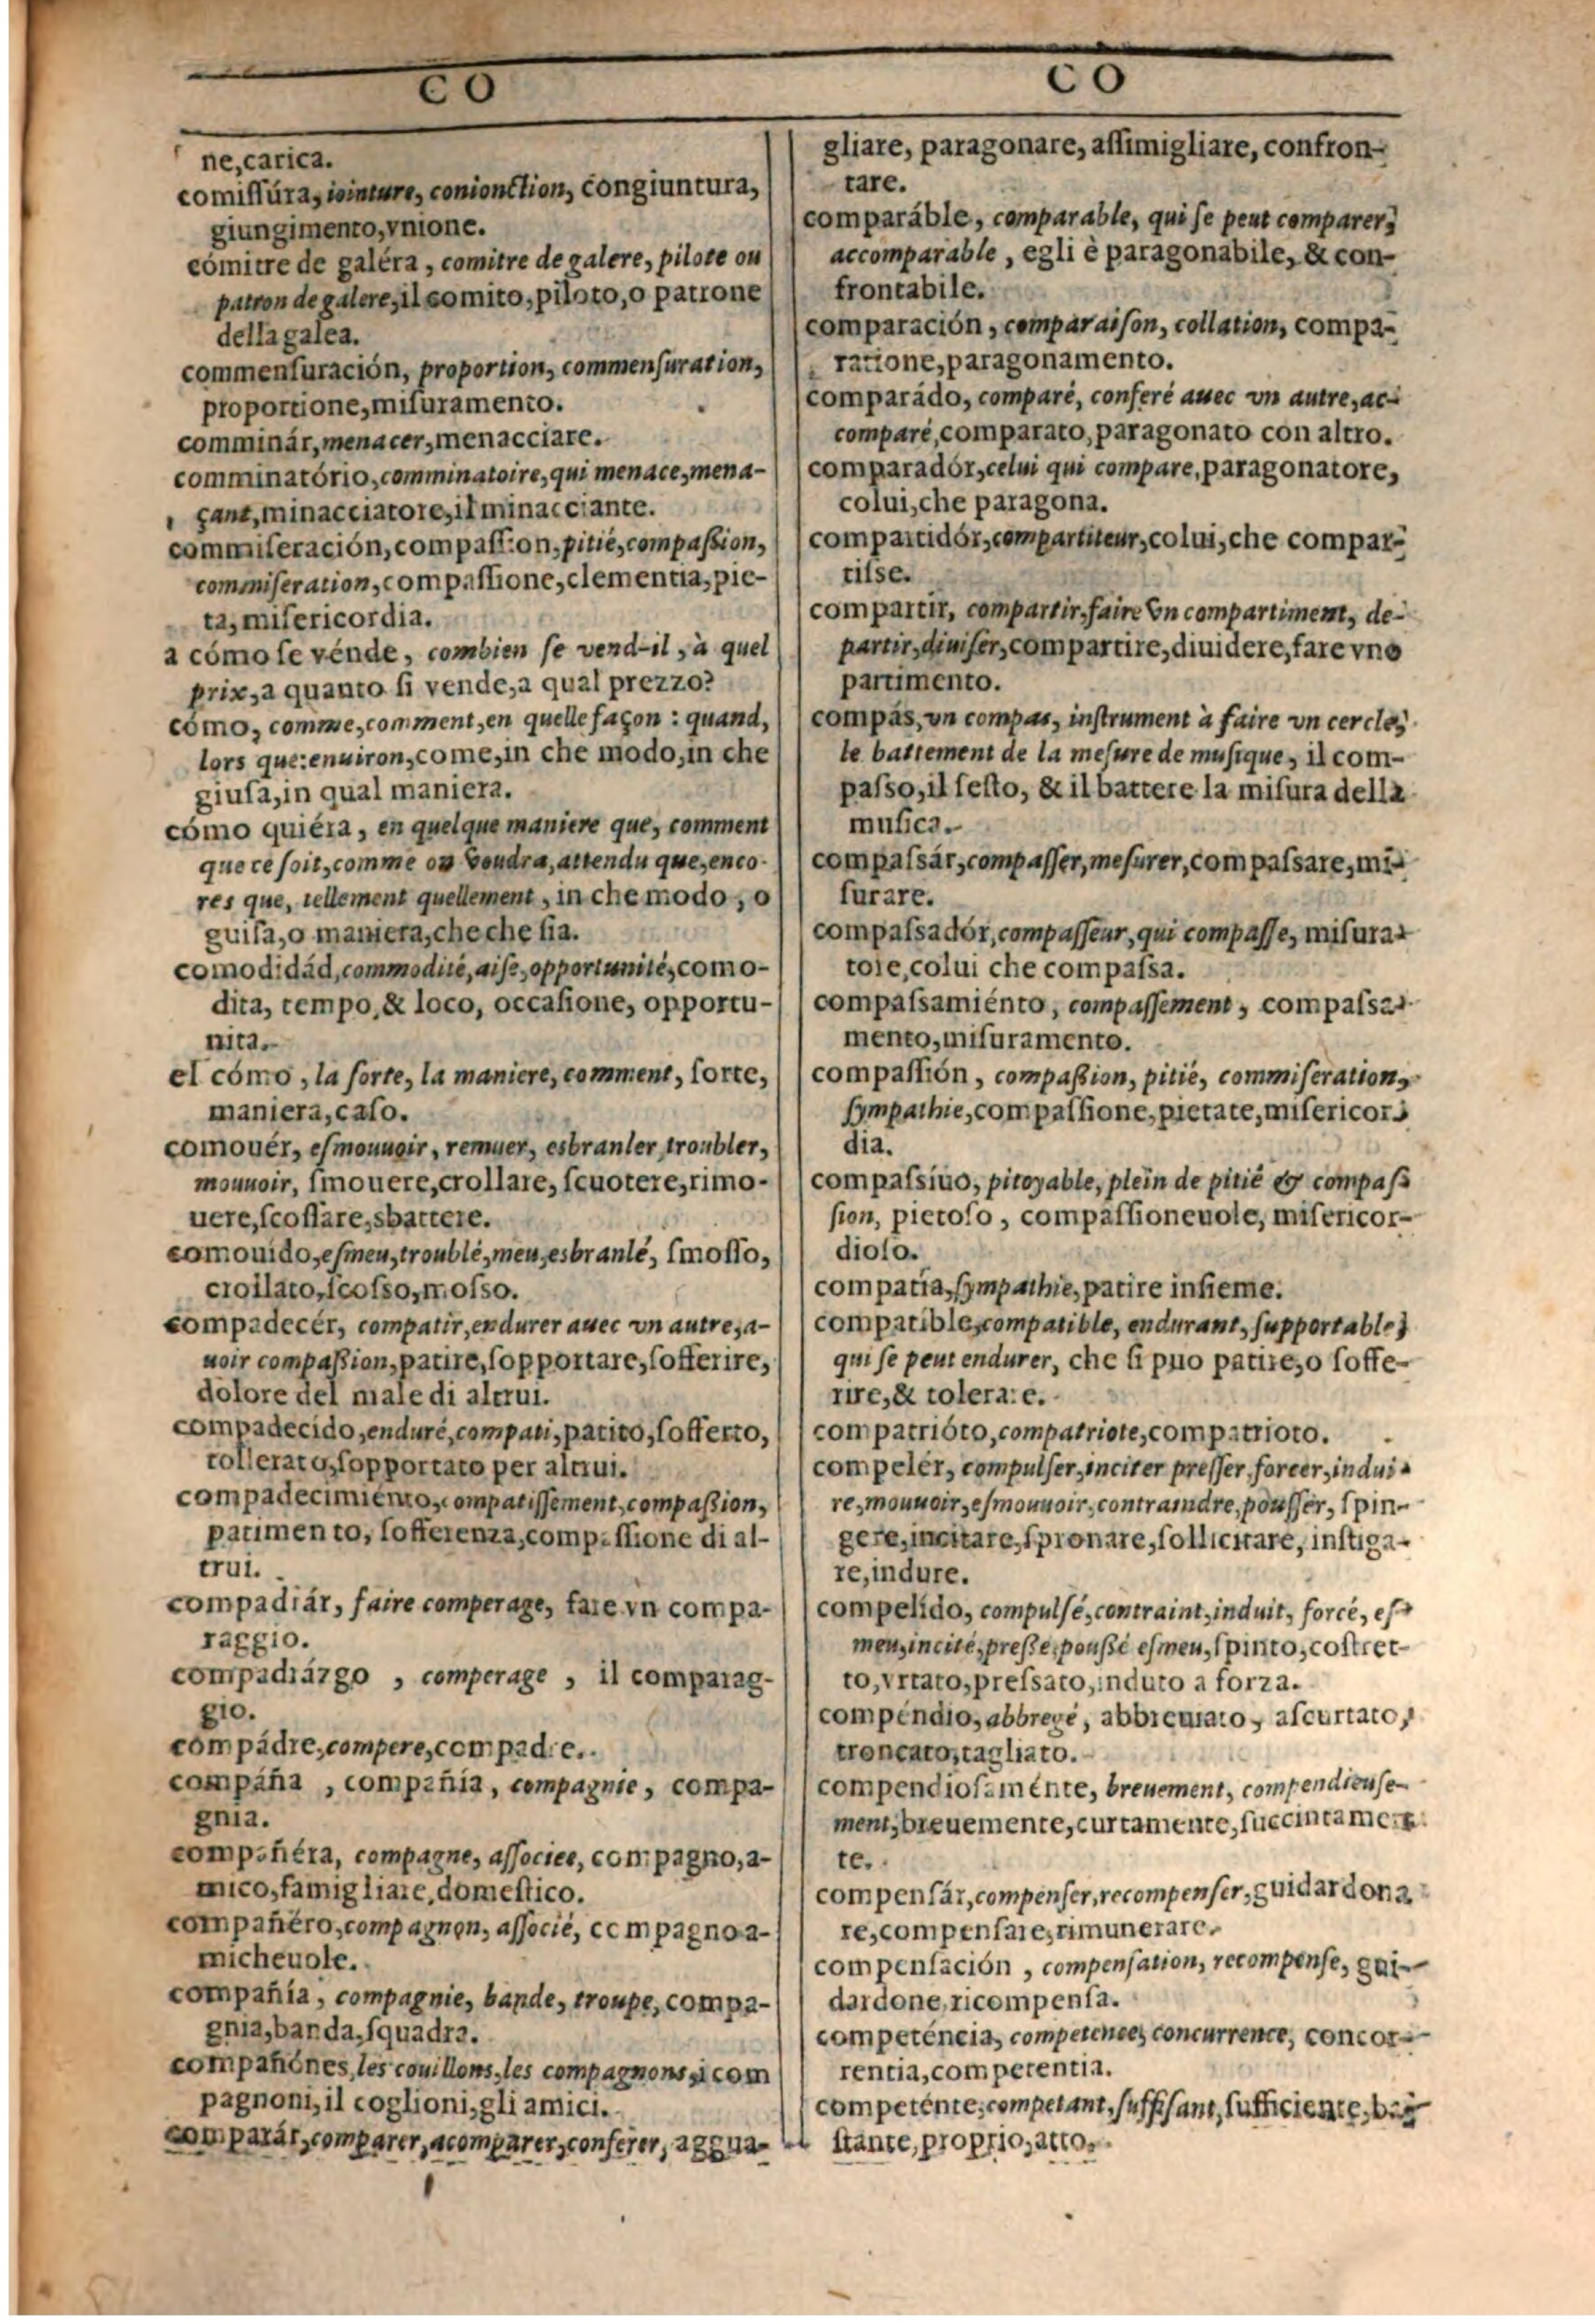 CO
ne,carica.
comiſſúra, iointure, conionction, congiuntura,
giungimento,vnione.
cómitre de galéra, comitre de galere, pilote ou
patron de galere,il comito,piloto,o patrone
della galea.
commenſuración, proportion, commenſuration,
proportione,miſuramento.
comminár,menacer,menacciare.
comminatório,comminatoire,qui menace,mena-
çant,minacciatore,il minacciante.
commiſeración,compaſſion,pitié,compaſsion,
commiſeration,compaſſione,clementia,pie-
ta,miſericordia.
a cómo ſe vénde, combien ſe vend-il, à quel
prix,a quanto ſi vende,a qual prezzo?
cómo, comme,comment,en quelle façon : quand,
lors que:enuiron,come,in che modo,in che
giuſa,in qual maniera.
cómo quiéra, en quelque maniere que, comment
que ce ſoit,comme on voudra,attendu que,enco-
res que, tellement quellement, in che modo, o
guiſa,o maniera,che che ſia.
comodidád,commodité,aiſe,opportunité,como-
dita, tempo,& loco, occaſione, opportu-
nita.
el cómo, la ſorte, la maniere, comment, ſorte,
maniera,caſo.
comouér, eſmouuoir, remuer, esbranler,troubler,
mouuoir, ſmouere,crollare, ſcuotere,rimo-
uere,ſcoſſare,sbattere.
comouido,eſmeu,troublé,meu,esbranlé, ſmoſſo,
crollato,ſcoſſo,moſſo.
compadecér, compatir,endurer auec vn autre,a-
uoir compaſsion,patire,ſopportare,ſofferire,
dolore del male di altrui.
compadecido,enduré,compati,patito,ſofferto,
tollerato,ſopportato per altrui.
compadecimiénto,compatiſſement,compaſsion,
patimento, ſofferenza,compaſſione di al-
trui.
compadrár, faire comperage, fare vn compa-
raggio.
compadrázgo, comperage, il comparag-
gio.
compádre,compere,compadre.
compáña, compañía, compagnie, compa-
gnia.
compañéra, compagne, aſſociee, compagno,a-
mico,famigliare,domeſtico.
compañéro,compagnon, aſſocié, compagno a-
micheuole.
compañía, compagnie, bande, troupe, compa-
gnia,banda,ſquadra.
compañónes,les couillons,les compagnons,i com
pagnoni,il coglioni,gli amici.
comparár,comparer,acomparer,conferer, aggua-
CO
gliare, paragonare, aſſimigliare, confron-
tare.
comparáble, comparable, qui ſe peut comparer,
accomparable, egli è paragonabile, & con-
frontabile.
comparación, comparaiſon, collation, compa-
ratione,paragonamento.
comparádo, comparé, conferé auec vn autre,ac-
comparé,comparato,paragonato con altro.
comparadór,celui qui compare,paragonatore,
colui,che paragona.
compartidór,compartiteur,colui,che compar-
tiſse.
compartir, compartir,faire vn compartiment, de-
partir,diuiſer,compartire,diuidere,fare vno
partimento.
compás,vn compas, inſtrument à faire vn cercle,
le battement de la meſure de muſique, il com-
paſſo,il ſeſto, & il battere la miſura della
muſica.
compaſsár,compaſſer,meſurer,compaſsare,mi-
ſurare.
compaſsadór,compaſſeur,qui compaſſe, miſura-
tore,colui che compaſsa.
compaſsamiénto, compaſſement, compaſsa-
mento,miſuramento.
compaſſión, compaſsion, pitié, commiſeration,
ſympathie,compaſſione,pietate,miſericor-
dia.
compaſsiuo, pitoyable, plein de pitié & compaſ-
ſion, pietoſo, compaſſioneuole, miſericor-
dioſo.
compatía,ſympathie,patire inſieme.
compatíble,compatible, endurant, ſupportable,
qui ſe peut endurer, che ſi puo patire,o ſoffe-
rire,& tolerare.
compatrióto,compatriote,compatrioto.
compelér, compulſer,inciter preſſer,forcer,indui-
re,mouuoir,eſmouuoir,contraindre,pouſſer, ſpin-
gere,incitare,ſpronare,ſollicitare, inſtiga-
re,indure.
compelído, compulſé,contraint,induit, forcé, eſ-
meu,incité,preſsé,pouſsé eſmeu,ſpinto,coſtret-
to,vrtato,preſsato,induto a forza.
compéndio,abbregé, abbreuiato, aſcurtato,
troncato,tagliato.
compendioſaménte, breuement, compendieuſe-
ment,breuemente,curtamente,ſuccintamen-
te.
compenſár,compenſer,recompenſer,guidardona
re,compenſare,rimunerare.
compenſación, compenſation, recompenſe, gui-
dardone,ricompenſa.
competéncia, competence, concurrence, concor-
rentia,competentia.
competénte,competant,ſuffiſant,ſufficiente,ba-
ſtante,proprio,atto.